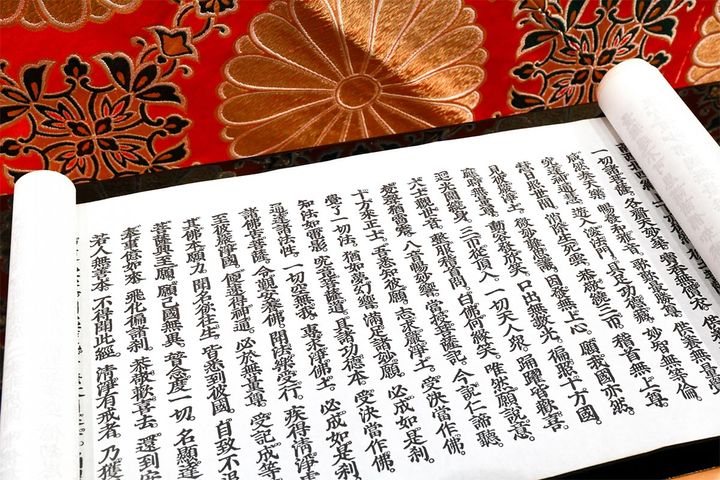 一切諸菩薩。各齎天妙華。寶香無價衣。供養無量
咸然奏天樂。暢發和雅音。歌歎最勝尊。供養無量
究達神通慧。遊入深法門。具足功德藏。妙智無等倫。
慧日照世間。消除生死雲。恭敬繞三帀。稽首無上尊。
見彼嚴淨土。微妙難思議。因發無上心。願我國亦然。
應時無量尊。動容發欣笑。口出無數光。徧照十方國。
迴光圍繞身。三帀從頂入。一切天人衆。踊躍皆歡喜。
大士觀世音。整服稽首問。白佛何緣笑。唯然願說意。
梵聲猶雷震。八音暢妙響。當授菩薩記。今說仁諦聽。
十方來正士。吾悉知彼願。志求嚴淨土。受決當作佛。
覺了一切法。猶如夢幻響。滿足諸妙願。必成如是刹。
知法如電影。究竟菩薩道。具諸功德本。受決當作佛。
通達諸法性。一切空無我。專求淨佛土。必成如是刹。
諸佛告菩薩。令覲安養佛。聞法樂受行。疾得清淨
至彼嚴淨國。便速得神通。必於無量尊。受記成等
其佛本願力。聞名欲往生。皆悉到彼國。自致不退
菩薩興至願。願己國無異。普念度一切。名顯達
奉事億如來。飛化徧諸刹。恭敬歡喜去。還到安
若人無善本。不得聞此經。清淨有戒者。乃獲